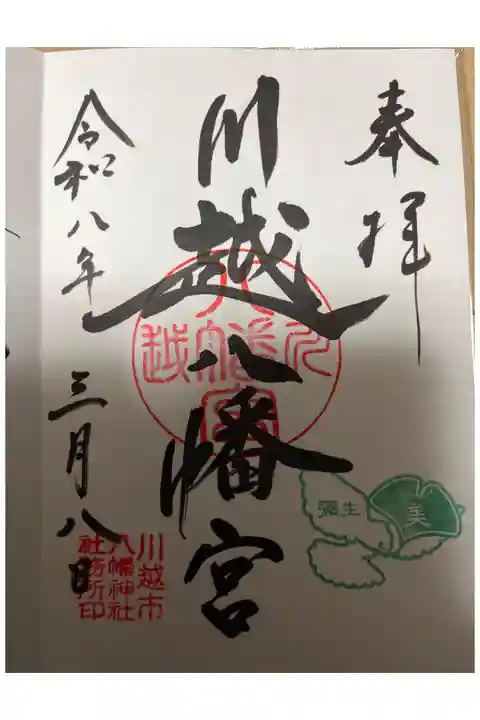 奉拝
川越八幡宮
令和八年 三月八日
川越
八幡宮
彌生
美
川越市
八幡神社
社務所印